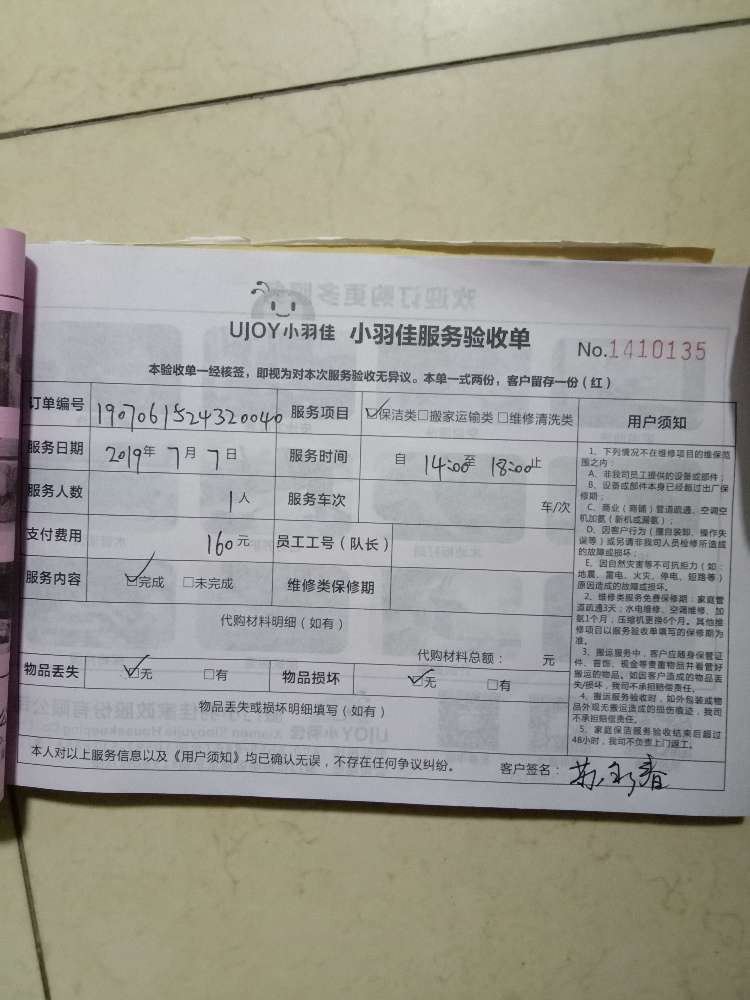 UJOY小羽佳 小羽佳服务验收单
No.1410135
本验收单一经核签，即视为对本次服务验收无异议。本单一式两份，客户留存一份（红）
订单编号 1907061524320040 服务项目 ☑保洁类□搬家运输类□维修清洗类
服务日期 2019年 7月 7日 服务时间 自 14:00至 18:00止
服务人数 1人 服务车次 车/次
支付费用 160元 员工工号（队长）
服务内容 ☑完成 □未完成 维修类保修期
代购材料明细（如有）
代购材料总额： 元
物品丢失 ☑无 □有 物品损坏 ☑无 □有
物品丢失或损坏明细填写（如有）
本人对以上服务信息以及《用户须知》均已确认无误，不存在任何争议纠纷。 客户签名：
用户须知
1、下列情况不在维修项目的维保范
围之内：
A、非我司员工提供的设备或部件；
B、设备或部件本身已经超过出厂保
修期；
C、商业（商铺）管道疏通、空调空
机加氨（新机或漏氨）；
D、因客户行为（擅自装卸、操作失
误等）或另请非我司人员检修所造成
的故障或损坏；
E、因自然灾害等不可抗拒力（如：
地震、雷电、火灾、停电、短路等）
原因造成的故障或损坏。
2、维修类服务免费保修期：家庭管
道疏通3天；水电维修、空调维修、加
氨1个月；压缩机更换6个月。其他维
修项目以服务验收单填写的保修期为
准。
3、搬运服务中，客户应随身保管证
件、首饰、现金等贵重物品并看管好
搬运的物品。如因客户造成的物品丢
失/损坏，我司不承担赔偿责任。
4、搬运服务验收时，如外包装或物
品外观无搬运造成的损伤痕迹，我司
不承担赔偿责任。
5、家庭保洁服务验收结束后超过
48小时，我司不负责上门返工。